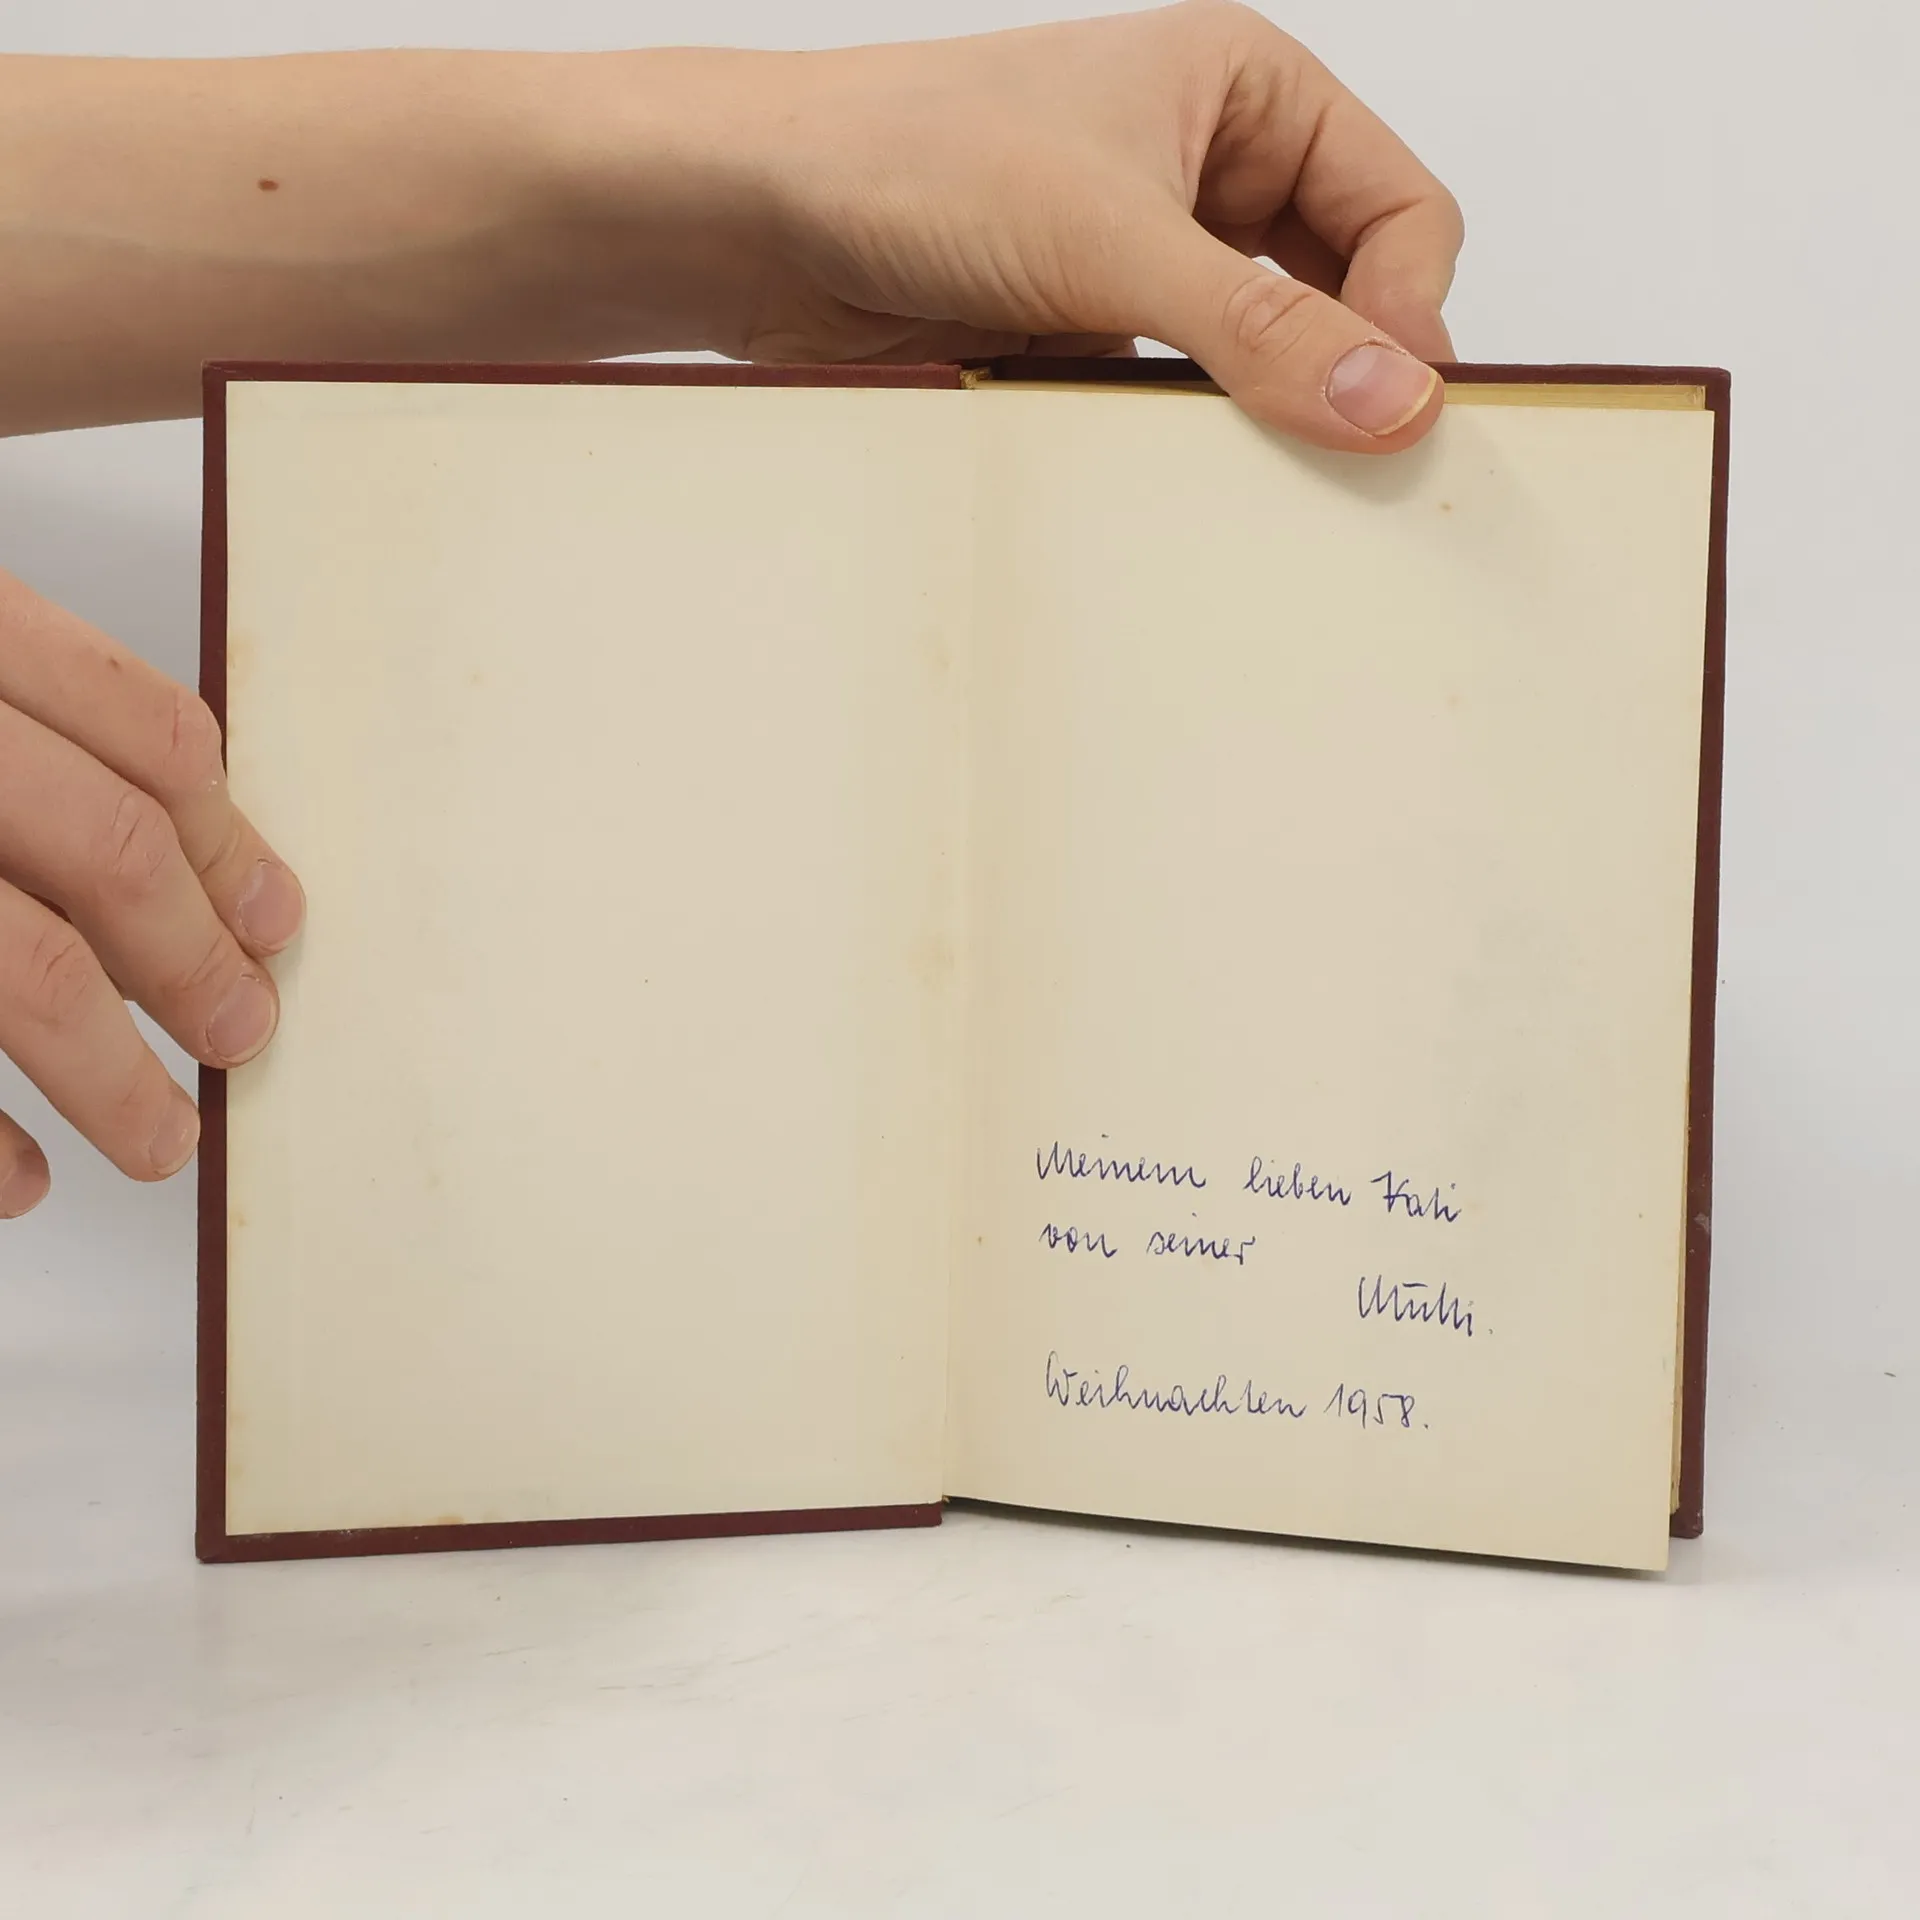 Meinem lieben Kati
von seiner
Mutti.
Weihnachten 1958.